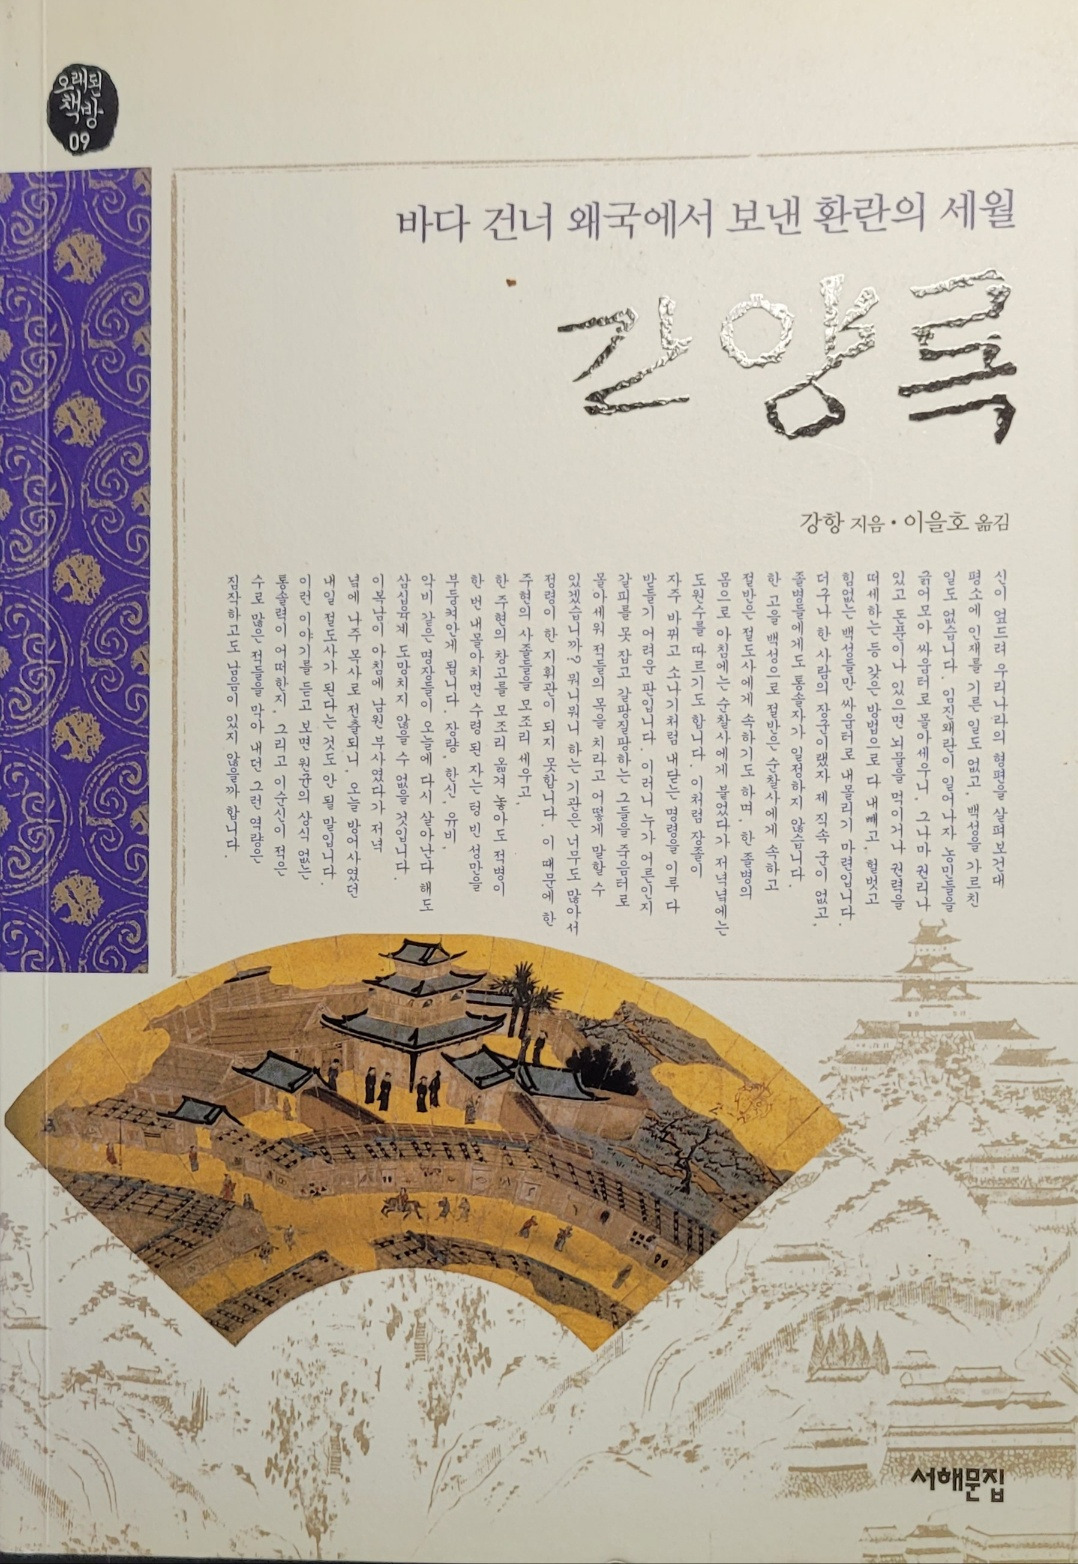 오래된
책방
09
바다 건너 왜국에서 보낸 환란의 세월
간양록
강항 지음·이을호 옮김
신이 엎드려 우리나라의 형편을 살펴보건대
평소에 인재를 기른 일도 없고, 백성을 가르친
일도 없습니다. 임진왜란이 일어나자 농민들을
긁어모아 싸움터로 몰아세우니, 그나마 권리나
있고 돈푼이나 있으면 뇌물을 먹이거나 권력을
떠세하는 등 갖은 방법으로 다 내빼고, 헐벗고
힘없는 백성들만 싸움터로 내몰리기 마련입니다.
더구나 한 사람의 장군이랬자 제 직속 군이 없고,
졸병들에게도 통솔자가 일정하지 않습니다.
한 고을 백성으로 절반은 순찰사에게 속하고
절반은 절도사에게 속하기도 하며, 한 졸병의
몸으로 아침에는 순찰사에게 붙었다가 저녁녘에는
도원수를 따르기도 합니다. 이처럼 장졸이
자주 바뀌고 소나기처럼 내닫는 명령을 이루 다
받들기 어려운 판입니다. 이러니 누가 어른인지
갈피를 못 잡고 갈팡질팡하는 그들을 죽음터로
몰아세워 적들의 목을 치라고 어떻게 말할 수
있겠습니까? 뭐니뭐니 하는 기관은 너무도 많아서
정령이 한 지휘관이 되지 못합니다. 이 때문에 한
주현의 사졸들을 모조리 세우고,
한 주현의 창고를 모조리 옮겨 놓아도 적병이
한 번 내몰아치면 수령 된 자는 텅 빈 성만을
부둥켜안게 됩니다. 장량, 한신, 유비,
악비 같은 명장들이 오늘에 다시 살아난다 해도
삼십육계 도망치지 않을 수 없을 것입니다.
이복남이 아침에 남원 부사였다가 저녁
녘에 나주 목사로 전출되니, 오늘 방어사였던
내일 절도사가 된다는 것도 안 될 말입니다.
이런 이야기를 듣고 보면 원균의 상식 없는
통솔력이 어떠한지, 그리고 이순신이 적은
수로 많은 적들을 막아 내던 그런 역량은
짐작하고도 남음이 있지 않을까 합니다.
서해문집